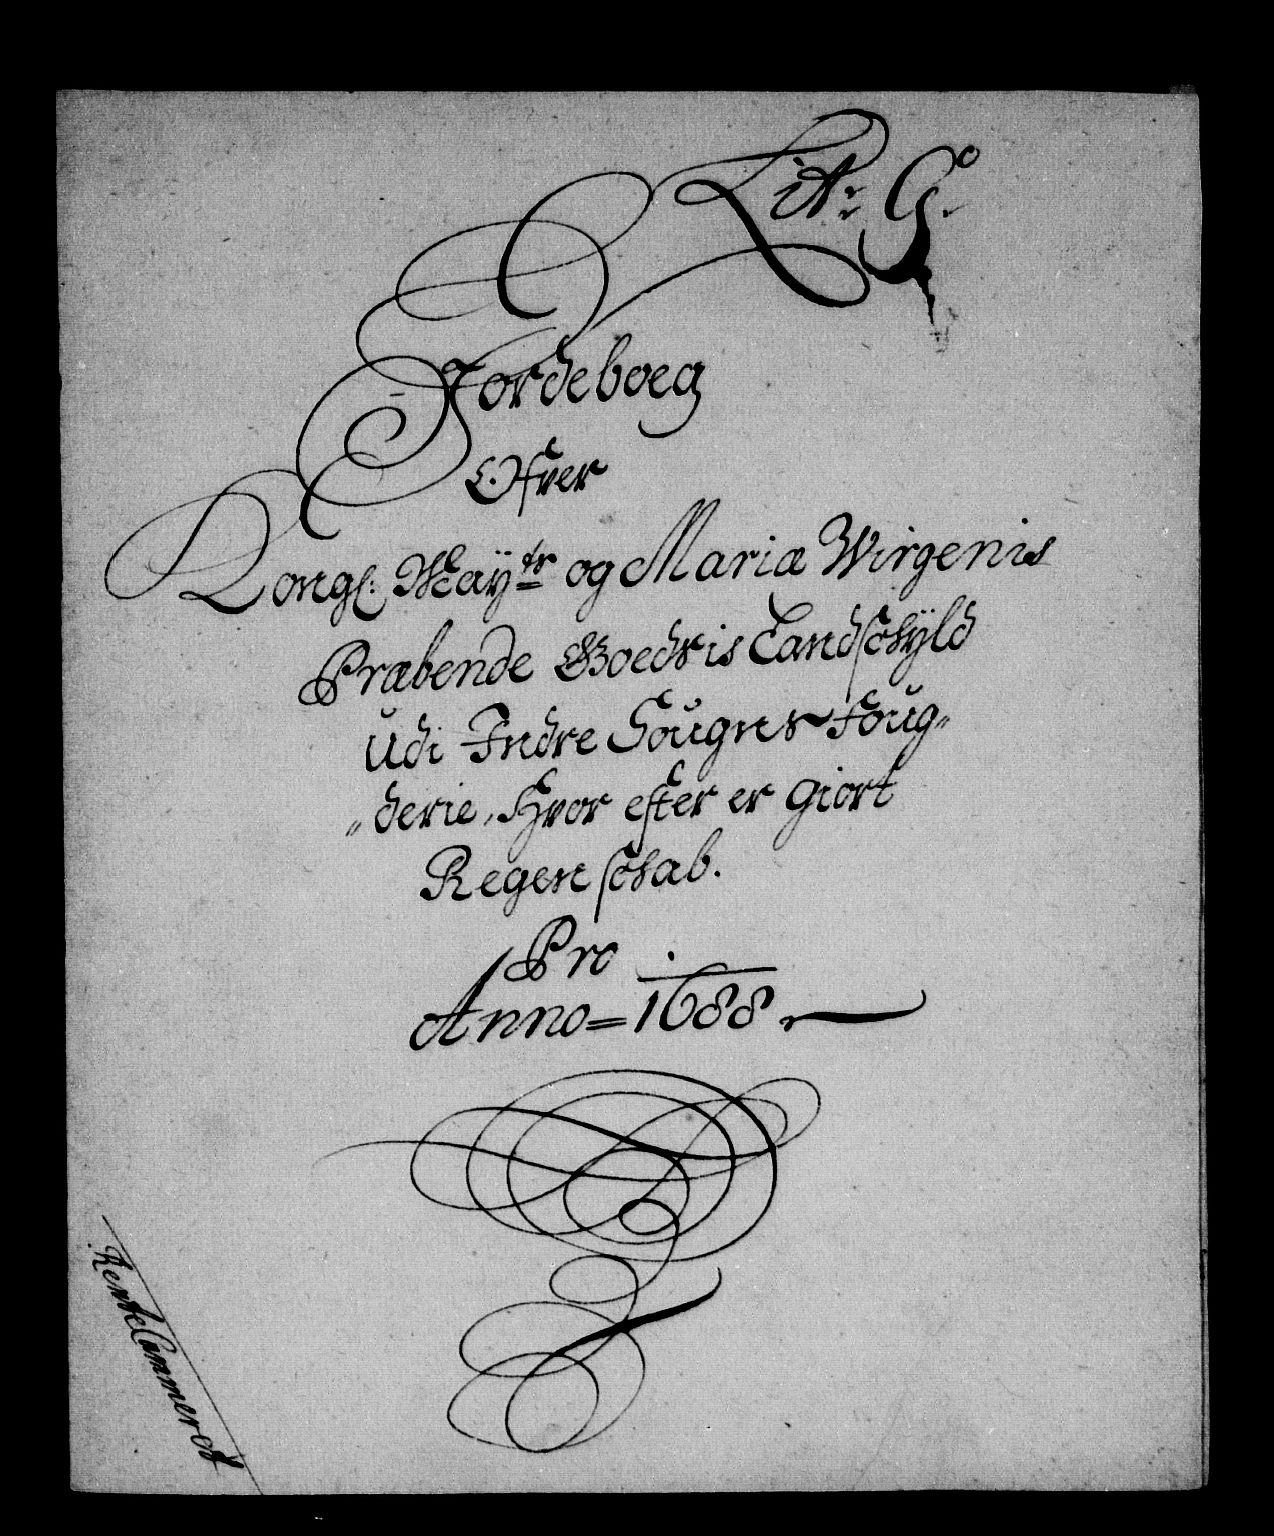 Lit: G.
Jordeboeg
Ofver
Kongl: Mayᵗᵗʳ og Mariæ Wirgenis
Præbende Goedtzis Landschÿld
Udi Indre Sougns Foug„
„derie, Hvor efter er giort
Regenschab.
Pro
Anno = 1688.
RenteCammeret